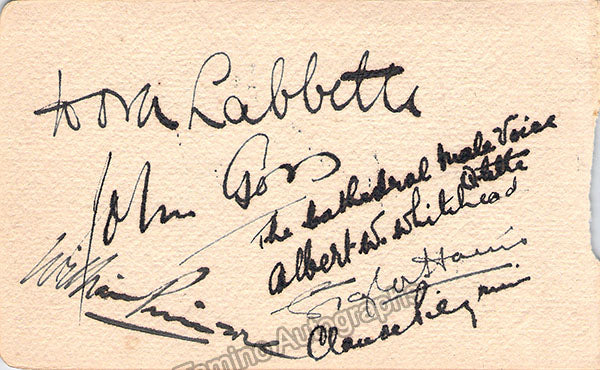 Dora Labbette
John Goss
The Cathedral Male Voice
Albert W. Whitehead
William Primrose
Harris
Claude Pilgrim
Tamino Autographs